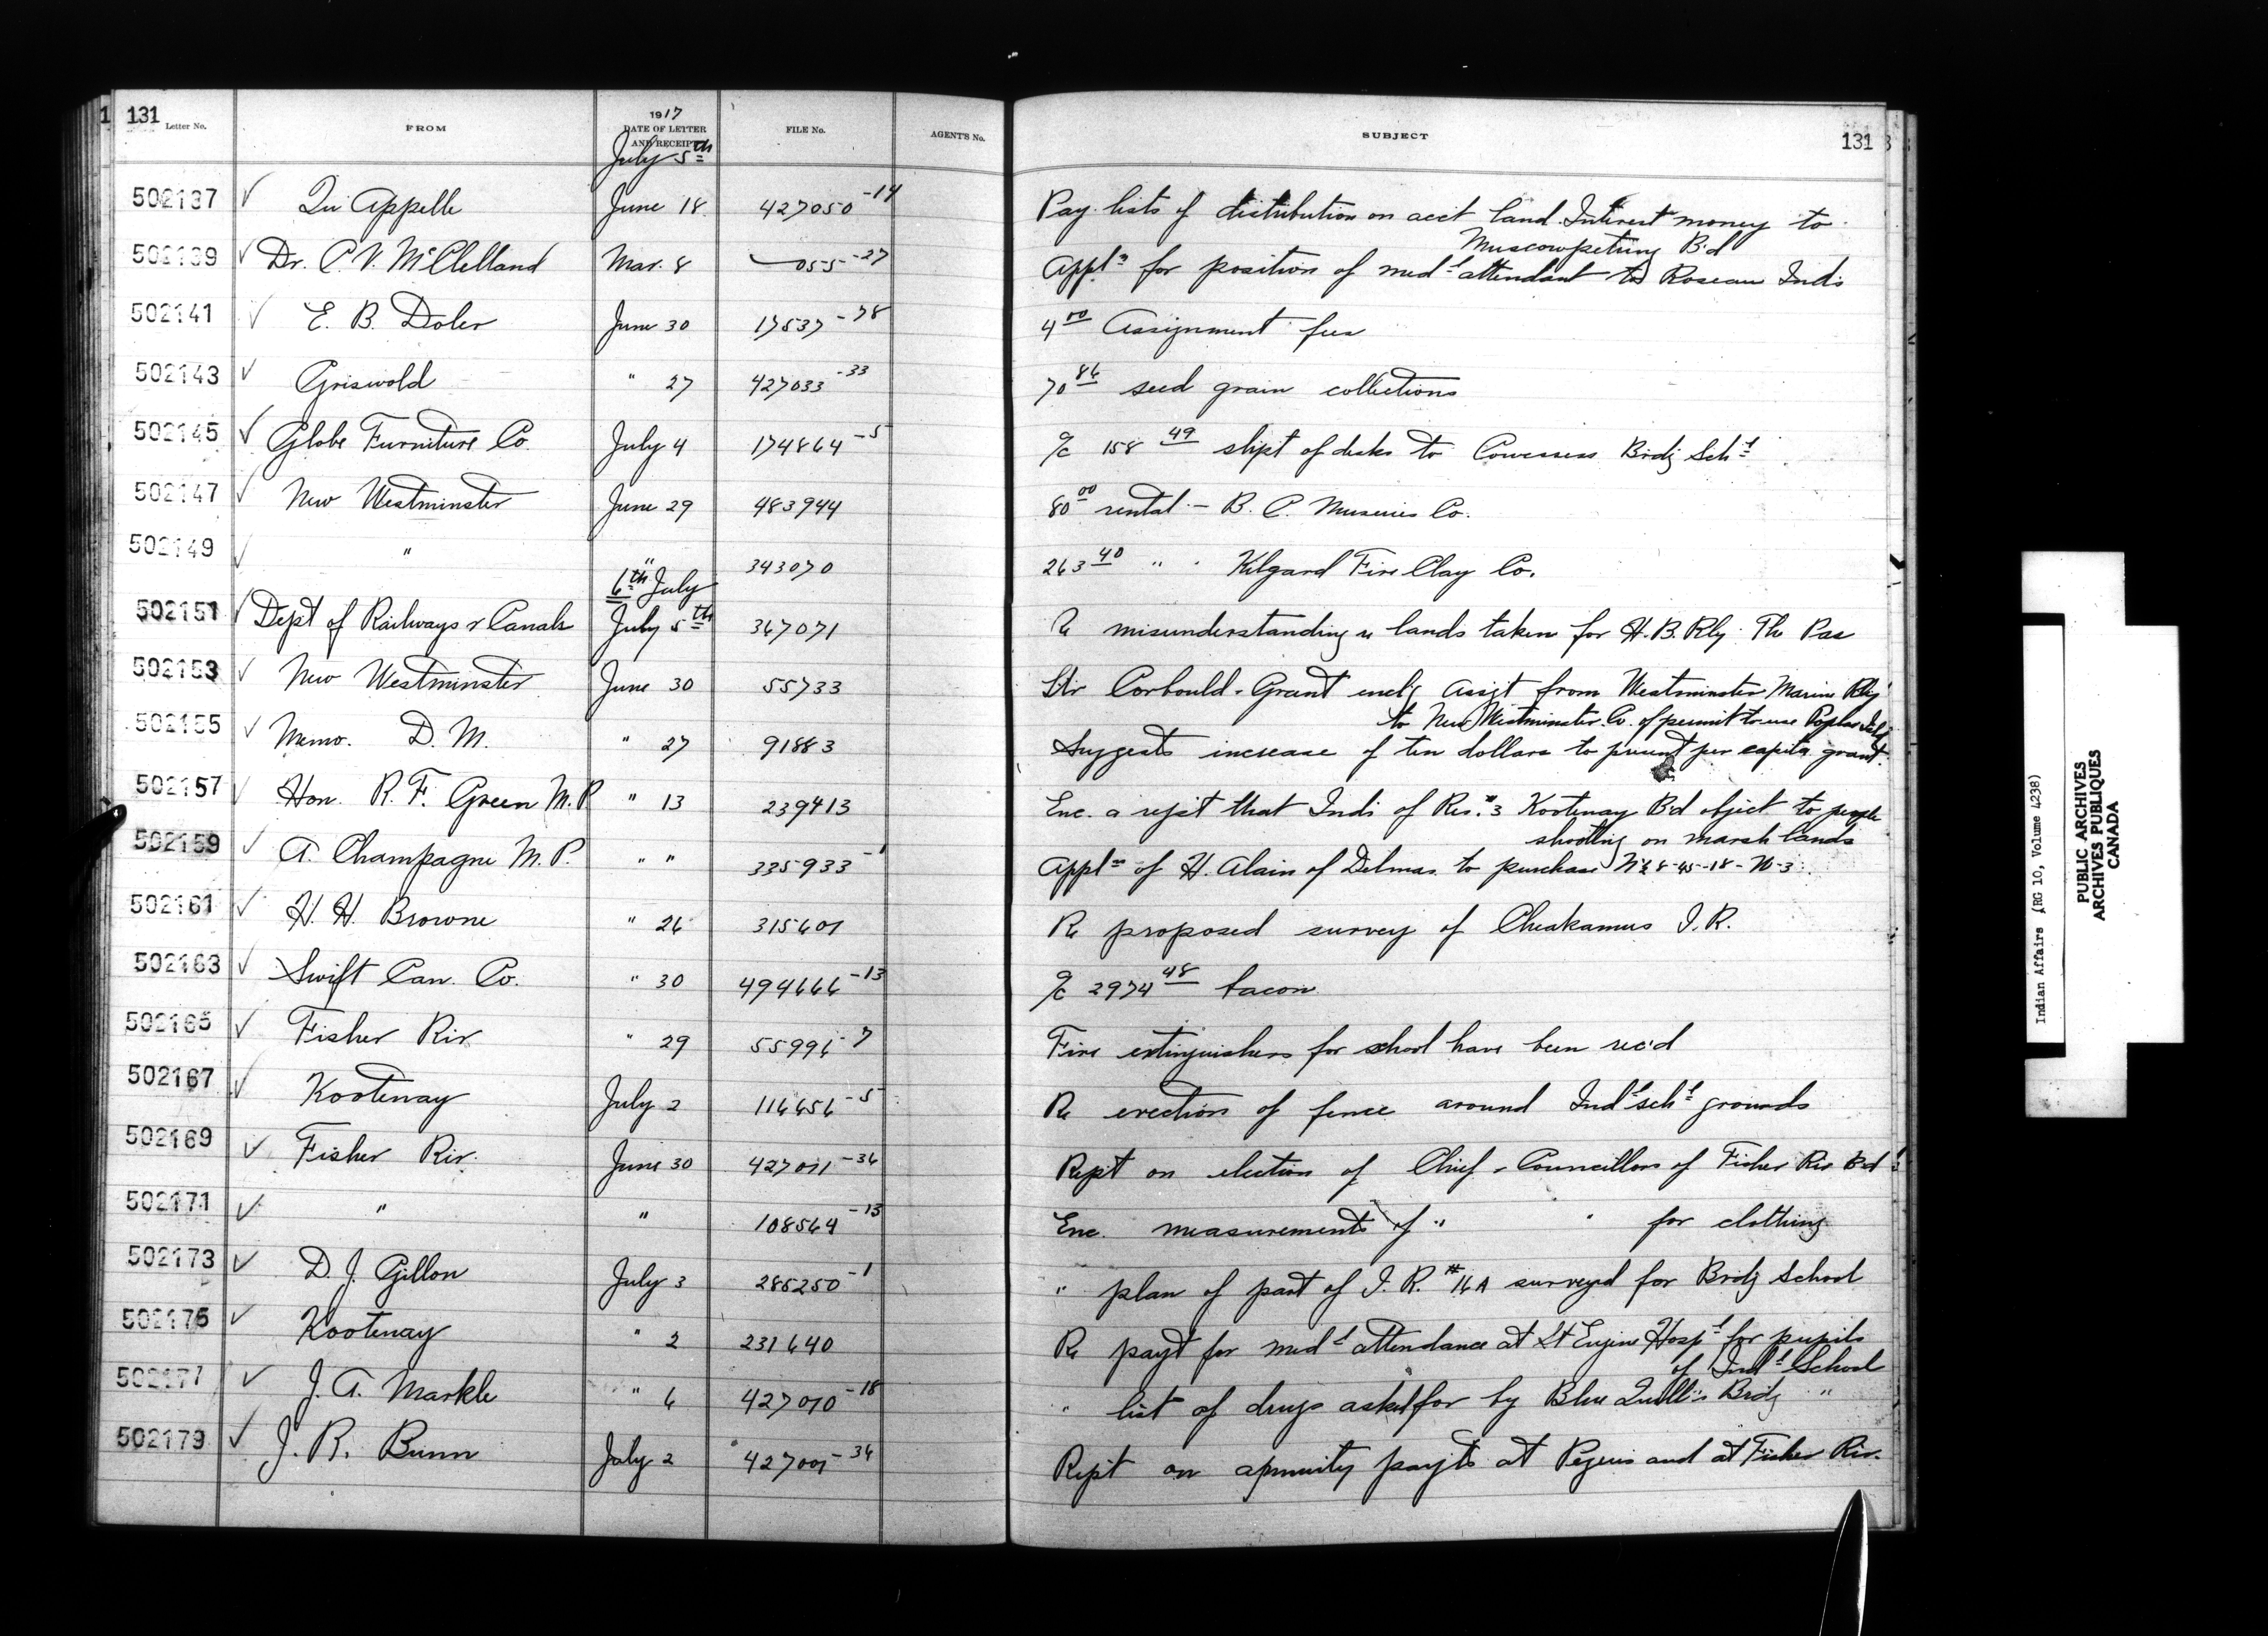 131 Letter No. FROM 1917 DATE OF LETTER AND RECEIPT FILE No. AGENT'S No. SUBJECT 131
July 5th
502137 ✓ Qu'Appelle June 18 427050-14 Pay lists of distribution on acct land Interest money to
Muscowpetung Bd
502139 ✓ Dr. C. V. McClelland Mar. 8 055-27 Appln for position of medl attendant to Roseau Inds
502141 ✓ E. B. Doler June 30 17537-78 4 00 Assignment fees
502143 ✓ Griswold " 27 427033-33 70 86 seed grain collections
502145 ✓ Globe Furniture Co. July 4 174864-5 a/c 158 49 shipt of desks to Cowessess Brdg Schl
502147 ✓ New Westminster June 29 483944 80 00 rental - B. C. Co.
502149 ✓ " " 343070 263 40 " " Kilgard Fire Clay Co.
6th July
502151 ✓ Dept of Railways & Canals July 5th 367071 Re misunderstanding re lands taken for H. B. Rly. The Pas
502153 ✓ New Westminster June 30 55733 Ltr Corbould-Grant enclg Assgt from Westminster Marine Rly
to New Westminster Co. of permit to use Poplar Isld
502155 ✓ Memo. D. M. " 27 91883 Suggests increase of ten dollars to present per capita grant.
502157 ✓ Hon. R. F. Green M.P. " 13 239413 Enc. a rept that Inds of Res. #3 Kootenay Bd object to people
shooting on marsh lands
502159 ✓ A. Champagne M.P. " " 335933-1 Appln of H. Alain of Delmas to purchase N½ 8-45-18-W-3.
502161 ✓ H. H. Browne " 26 315601 Re proposed survey of Cheakamus I. R.
502163 ✓ Swift Can. Co. " 30 494666-13 a/c 2974 48 bacon
502165 ✓ Fisher Riv. " 29 55996-7 Fire extinguishers for school have been rec'd
502167 ✓ Kootenay July 2 116656-5 Re erection of fence around Indl schl grounds
502169 ✓ Fisher Riv. June 30 427011-36 Rept on election of Chief & Councillors of Fisher Riv Bd
502171 ✓ " " 108564-13 Enc. measurements of " " for clothing
502173 ✓ D. J. Gillon July 3 285250-1 " plan of part of I. R. #16A surveyed for Brdg School
502175 ✓ Kootenay " 2 231640 Re payt for medl attendance at St Eugene Hospl for pupils
of Indl School
502177 ✓ J. A. Markle " 6 427010-18 " list of drugs asked for by Blue Quill's Brdg "
502179 ✓ J. R. Bunn July 2 427001-36 Rept on annuity payts at Peguis and at Fisher Riv.
Indian Affairs (RG 10, Volume 4238)
PUBLIC ARCHIVES
ARCHIVES PUBLIQUES
CANADA